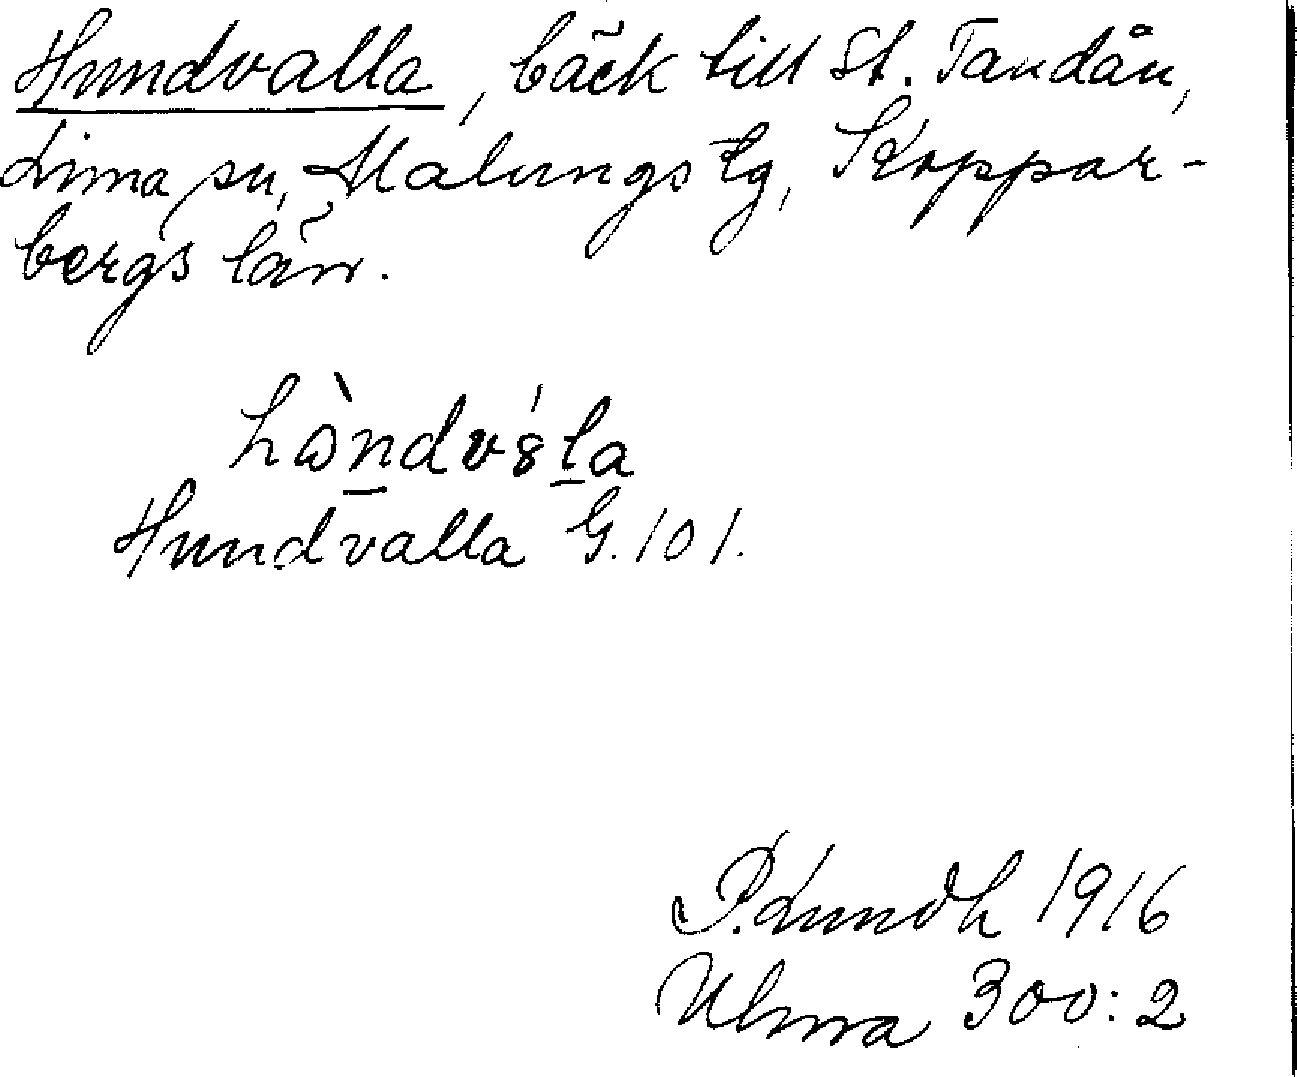 Hundvalla, bäck till St. Tandån,
Lima sn, Malungs tg, Koppar-
bergs län.
hὼndv8́la
Hundvalla G. 101.
P. Lundh 1916
Ulma 300:2